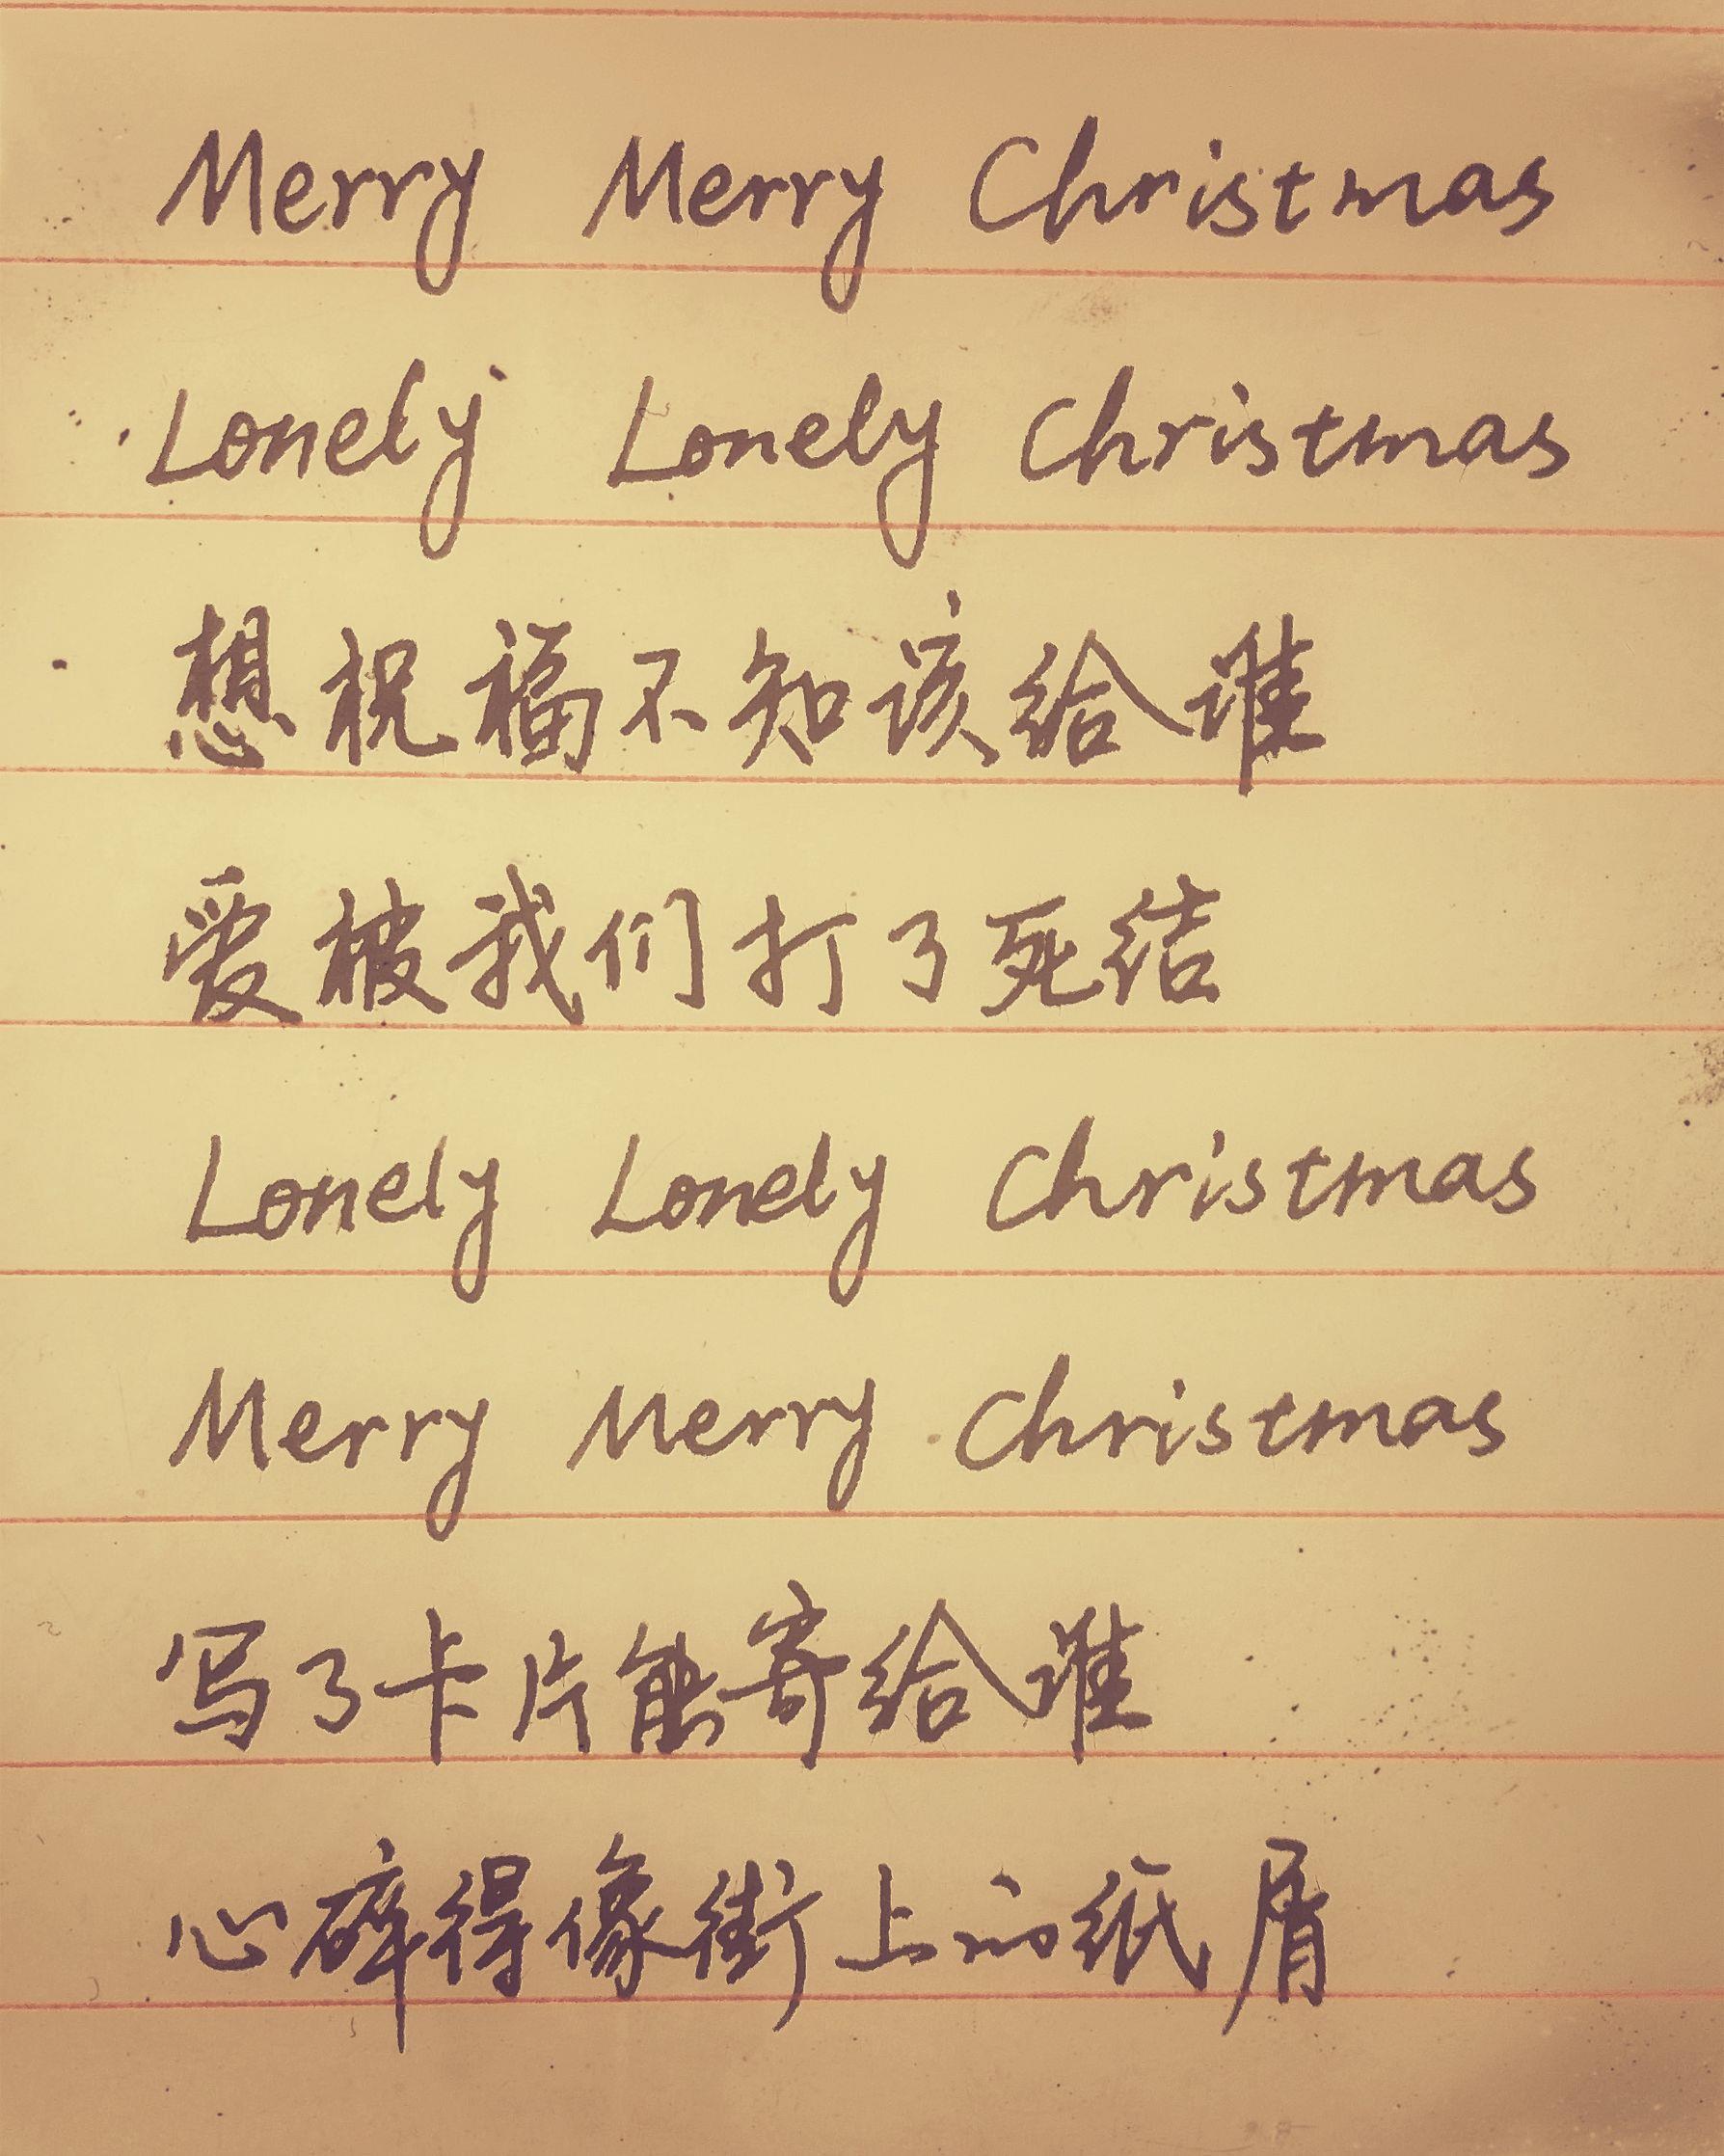 Merry Merry Christmas
Lonely Lonely Christmas
想祝福不知该给谁
爱被我们打了死结
Lonely Lonely Christmas
Merry Merry Christmas
写了卡片能寄给谁
心碎得像街上的纸屑